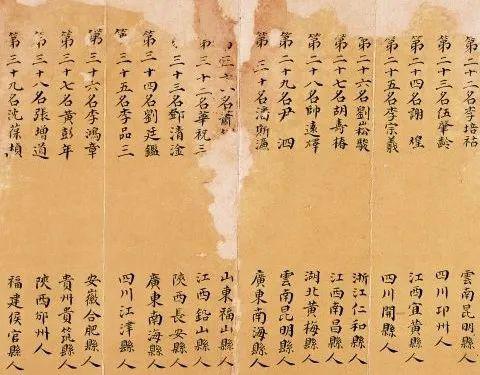 第二十二名李培祜 雲南昆明縣人
第二十三名伍肇齡 四川邛州人
第二十四名謝煌 江西宜黃縣人
第二十五名李宗羲 四川開縣人
第二十六名劉崧駿 浙江仁和縣人
第二十七名胡壽椿 江西南昌縣人
第二十八名帥遠燡 湖北黃梅縣人
第二十九名尹泗 雲南昆明縣人
第三十名潘斯濂 廣東南海縣人
名蕭 山東福山縣人
第三十二名華祝三 江西鉛山縣人
三十三名鄭清淦 陝西長安縣人
第三十四名劉廷鑑 廣東南海縣人
第三十五名李品三 四川江津縣人
第三十六名李鴻章 安徽合肥縣人
第三十七名黃彭年 貴州貴筑縣人
第三十八名張增道 陝西邠州人
第三十九名沈葆楨 福建侯官縣人